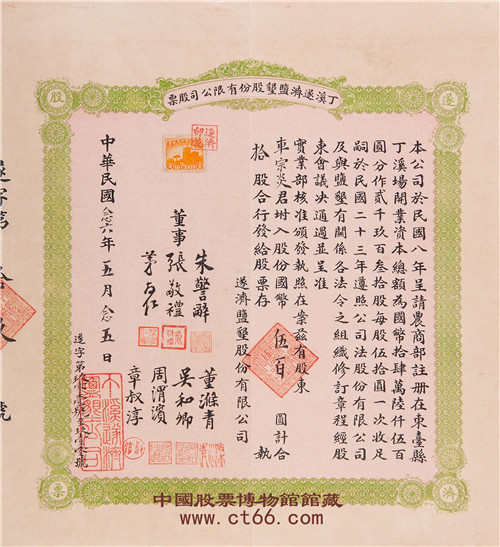 丁溪遂濟鹽墾股份有限公司股票
遂
股
濟
票
本公司於民國八年呈請農商部註冊在東臺縣
丁溪場開業資本總額為國幣拾肆萬陸仟伍百
圓分作貳千玖百叁拾股每股伍拾圓一次收足
嗣於民國二十三年遵照公司法股份有限公司
及與鹽墾有關係各法令之組織修訂章程經股
東會議決通過並呈准
實業部核准頒發執照在案茲有股東
車宗炎君坿入股份國幣伍百圓計合
拾股合行發給股票存執
遂濟鹽墾股份有限公司
董事
朱警辭
張敬禮
董滌青
吳和卿
周渭濱
章叔淳
遂濟印花
中華民國念六年五月念五日
遂字第
號
中國股票博物館館藏
www.ct66.com